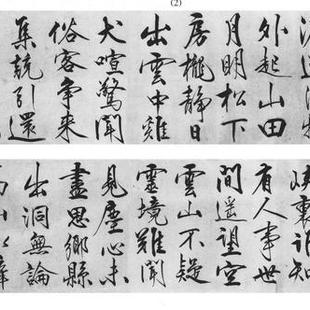 (2)
外起山田
月明松下
房櫳静日
出雲中雞
犬喧驚聞
俗客争来
集競引還
峽裏誰知
有人事世
間遥望空
雲山不疑
靈境難聞
見塵心未
盡思鄉縣
出洞無論